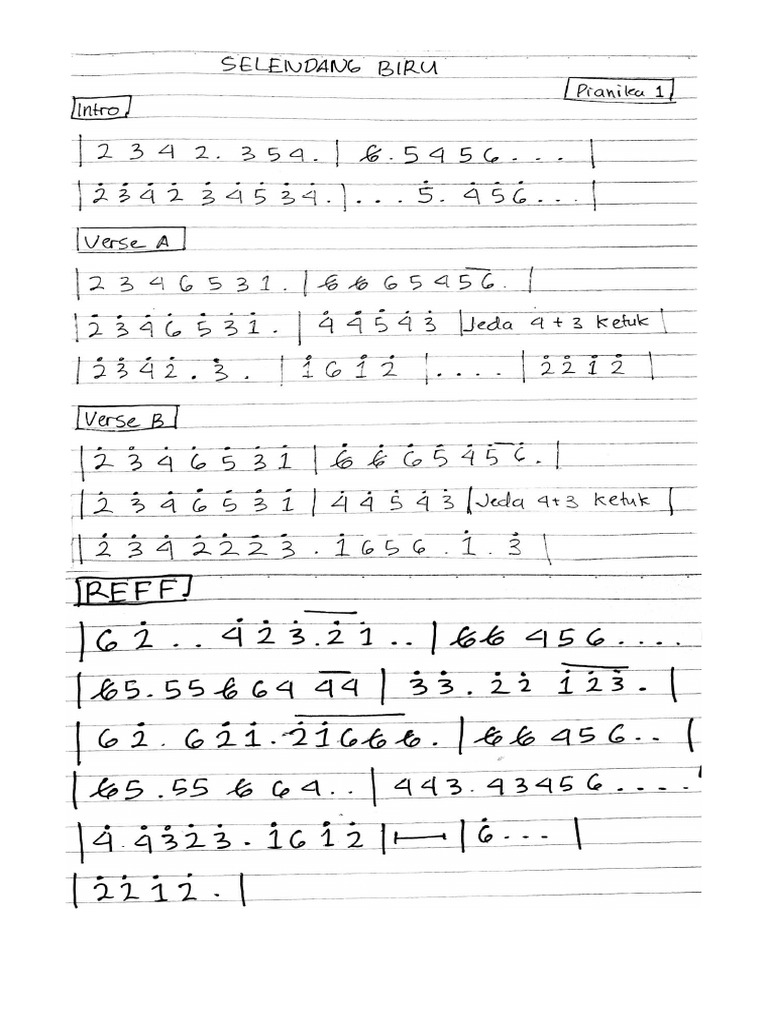 SELENDANG BIRU
Pianika 1
Intro
| 2 3 4 2 . 3 5 4 . | 6̸ . 5 4 5 6 . . . |
| 2̇ 3̇ 4̇ 2̇ 3̇ 4̇ 5̇ 3̇ 4̇ . | . . . 5̇ . 4̇ 5̇ 6̇ . . . |
Verse A
| 2 3 4 6 5 3 1 . | 6̸ 6̸ 6 5 4 5̅ 6̅ . |
| 2̇ 3̇ 4̇ 6̇ 5̇ 3̇ 1̇ . | 4̇ 4̇ 5̇ 4̇ 3̇ | Jeda 4 + 3 ketuk |
| 2̇ 3̇ 4̇ 2̇ . 3̇ . | 1̇ 6 1̇ 2̇ | . . . . | 2̇ 2̇ 1̇ 2̇ |
Verse B
| 2̇ 3̇ 4̇ 6̇ 5̇ 3̇ 1̇ | 6̸̇ 6̸̇ 6̇ 5̇ 4̇ 5̅̇ 6̅̇ . |
| 2̇ 3̇ 4̇ 6̇ 5̇ 3̇ 1̇ | 4̇ 4̇ 5̇ 4̇ 3̇ | Jeda 4+3 ketuk |
| 2̇ 3̇ 4̇ 2̇ 2̇ 2̇ 3̇ . 1̇ 6 5 6 . 1̇ . 3̇ |
REFF
| 6 2̇ . . 4̇ 2̇ 3̇ . 2̇ 1̇ . . | 6̸ 6̸ 4 5 6 . . . .
| 6̸ 5 . 5 5 6̸ 6 4 4̅ 4̅ | 3̇ 3̇ . 2̇ 2̇ 1̅̇ 2̅̇ 3̅̇ . |
| 6 2̇ . 6 2̇ 1̇ . 2̅̇ 1̅̇ 6̅ 6̸̅ 6̸ . | 6̸ 6̸ 4 5 6 . . |
| 6̸ 5 . 5 5 6̸ 6 4 . . | 4 4 3 . 4 3 4 5 6 . . . . |
| 4̇ . 4̇ 3̇ 2̇ 3̇ . 1̇ 6 1̇ 2̇ | |—| | 6̇ . . . |
| 2̇ 2̇ 1̇ 2̇ . |